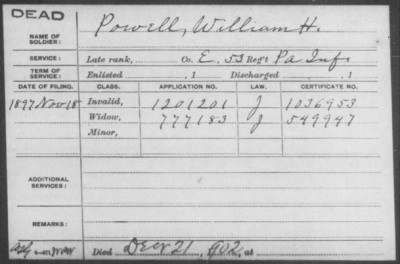 DEAD
NAME OF SOLDIER: Powell, William H.
SERVICE: Late rank, Co. E, 53 Reg't Pa Inf.
TERM OF SERVICE: Enlisted , 1 Discharged , 1
DATE OF FILING. CLASS. APPLICATION NO. LAW. CERTIFICATE NO.
1897 Nov 18 Invalid, 1201201 J 1036953
Widow, 777183 J 549947
Minor,
ADDITIONAL SERVICES:
REMARKS:
Died Dec 21, 1902, at